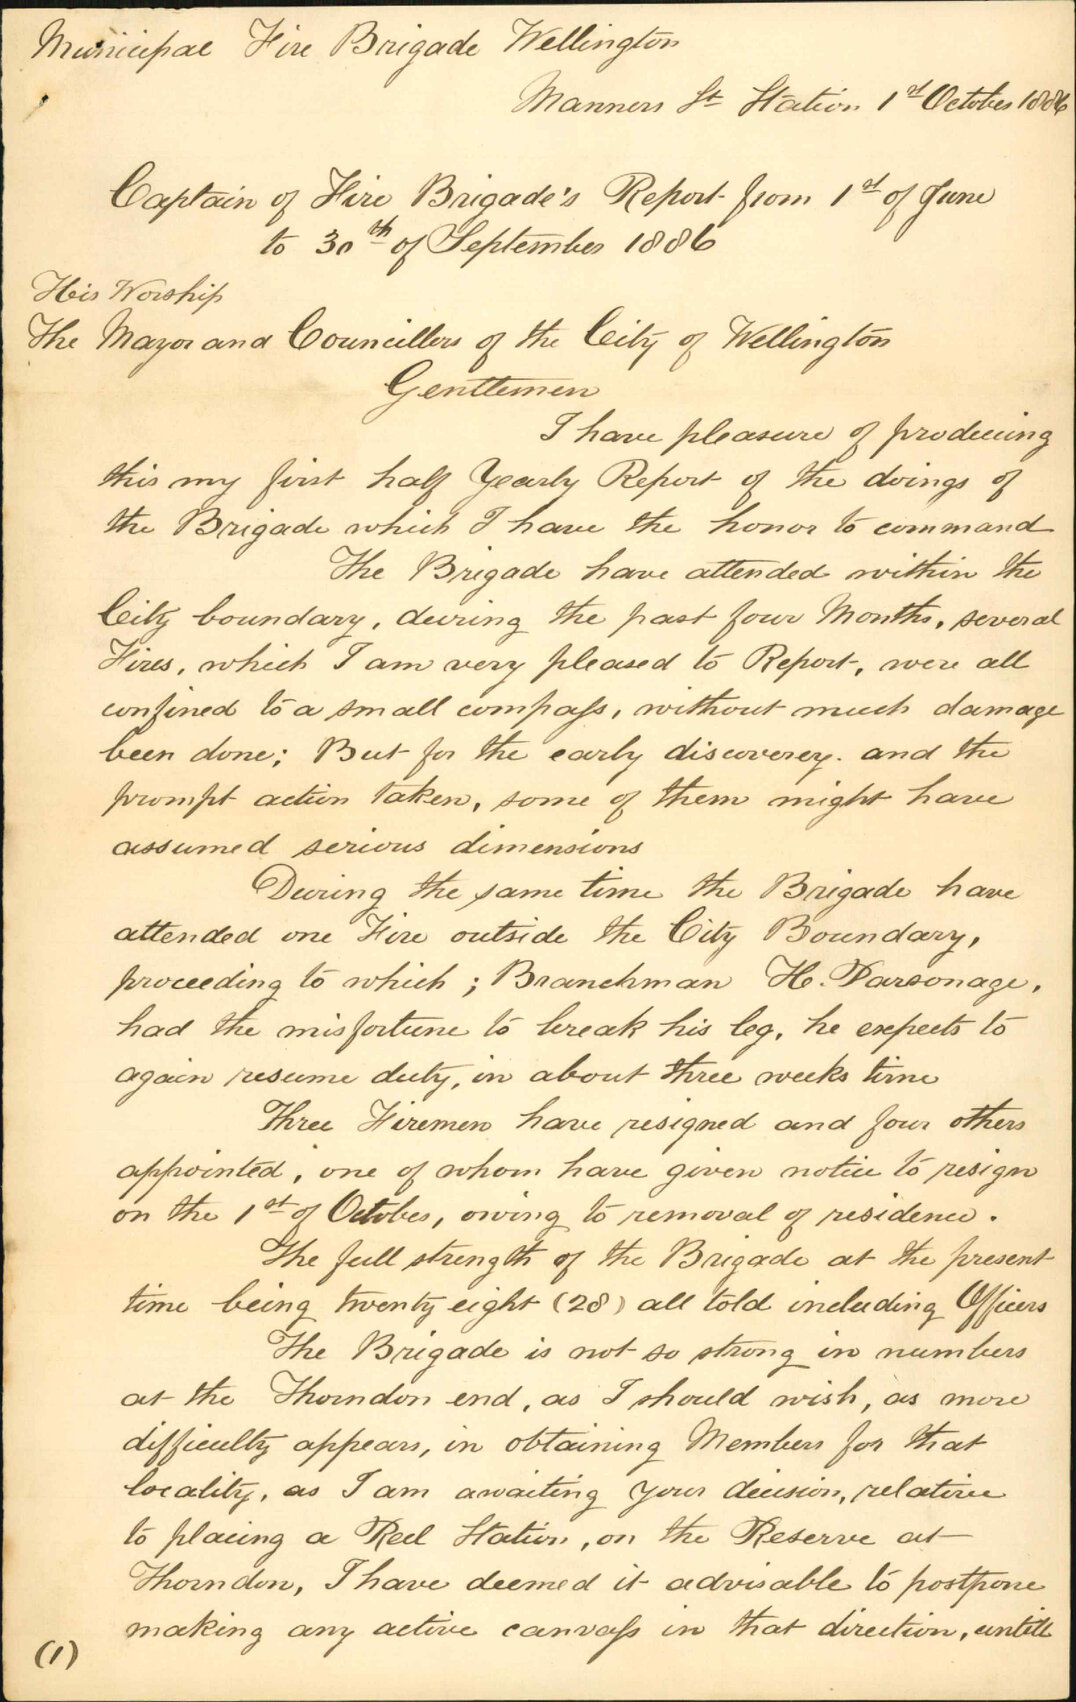 Municipal Fire Brigade Wellington
Manners St Station 1st October 1886
Captain of Fire Brigade's Report from 1st of June
to 30th of September 1886
His Worship
The Mayor and Councillers of the City of Wellington
Gentlemen
I have pleasure of producing
this my first half Yearly Report of the doings of
the Brigade which I have the honor to command
The Brigade have attended within the
City boundary, during the past four Months, several
Fires, which I am very pleased to Report, were all
confined to a small compass, without much damage
been done; But for the early discoverey. and the
prompt action taken, some of them might have
assumed serious dimensions
During the same time the Brigade have
attended one Fire outside the City Boundary,
proceeding to which; Branchman H. Parsonage,
had the misfortune to break his leg, he expects to
again resume duty, in about three weeks time
Three Firemen have resigned and four others
appointed, one of whom have given notice to resign
on the 1st of October, owing to removal of residence.
The full strength of the Brigade at the present
time being twenty eight (28) all told including Officers
The Brigade is not so strong in numbers
at the Thorndon end, as I should wish, as more
difficulty appears, in obtaining Members for that
locality, as I am awaiting your decision, relative
to placing a Reel Station, on the Reserve at
Thorndon, I have deemed it advisable to postpone
making any active canvass in that direction, untill
(1)